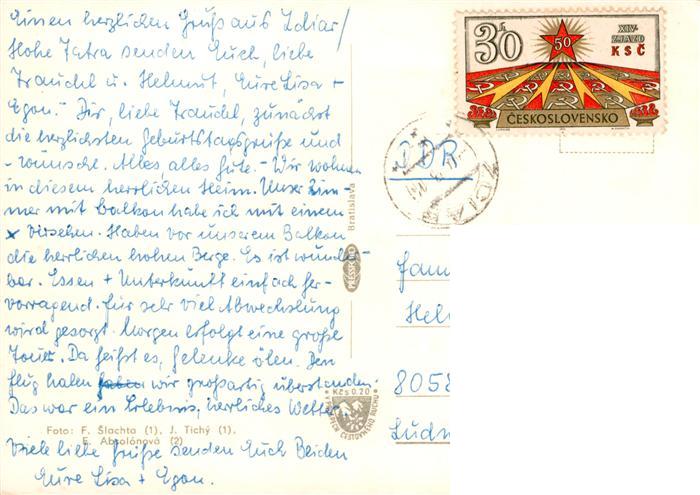 Einen herzlichen Gruß aus Zdiar/
Hohe Tatra senden Euch, liebe
Traudel u. Helmut, Eure Lisa +
Egon. Dir, liebe Traudel, zunächst
die herzlichsten Geburtstagsgrüße und
-wünsche. Alles, alles Gute. - Wir wohnen
in diesem herrlichen Heim. Unser Zim-
mer mit Balkon habe ich mit einem
x versehen. Haben vor unserem Balkon
die herrlichen hohen Berge. Es ist wunder-
bar. Essen + Unterkunft einfach her-
vorragend. Für sehr viel Abwechslung
wird gesorgt. Morgen erfolgt eine große
Tour. Da heißt es, Gelenke ölen. Den
Flug haben wir großartig überstanden.
Das war ein Erlebnis, herrliches Wetter.
Foto: F. Šlachta (1), J. Tichý (1),
E. Absolónová (2)
Viele liebe Grüße senden Euch Beiden
Eure Lisa + Egon.
Bratislava
PRESSFOTO
Kčs 0,20
CESTOVNÉHO RUCHU
30 h
50
XIV.
ZJAZD
KSČ
ČESKOSLOVENSKO
DDR
ŽDIAR
Fam
Hel
8058
Ludw